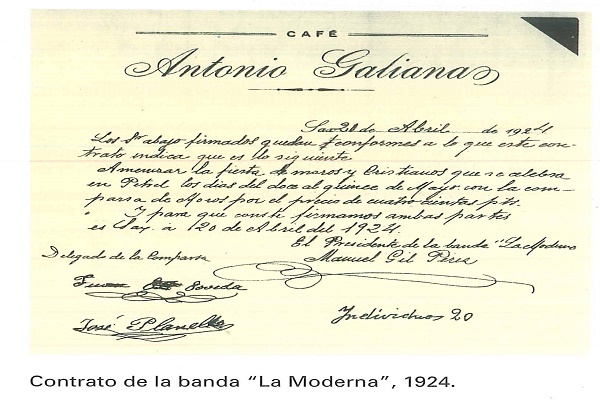 CAFÉ
Antonio Galiana
Sax 20 de Abril de 1924
Los Sr abajo firmados quedan conformes a lo que este con-
trato indica que es lo siguiente
Amenizar la fiesta de moros y Cristianos que se celebra
en Petrel los dias del doce al quince de Mayo con la com-
parsa de Moros por el precio de cuatro cientas pts.
Y para que conste firmamos ambas partes
en Sax a 20 de Abril del 1924.
El Presidente de la banda "La Moderna
Delegado de la Comparsa
Manuel Gil Pérez
Juan Poveda
José Planelles
Individuos 20
Contrato de la banda "La Moderna", 1924.